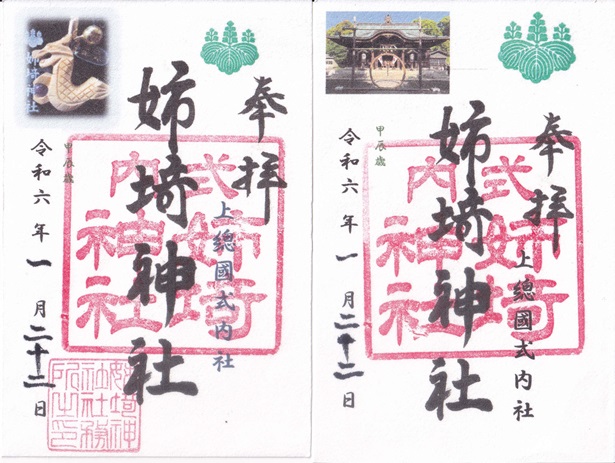 奉拝
上總國式内社
姉埼神社
式内
姉埼
神社
甲辰歳
令和六年一月二十二日
姉埼神社
姉埼神
社社務
所之印
奉拝
上總國式内社
姉埼神社
式内
姉埼
神社
甲辰歳
令和六年一月二十二日